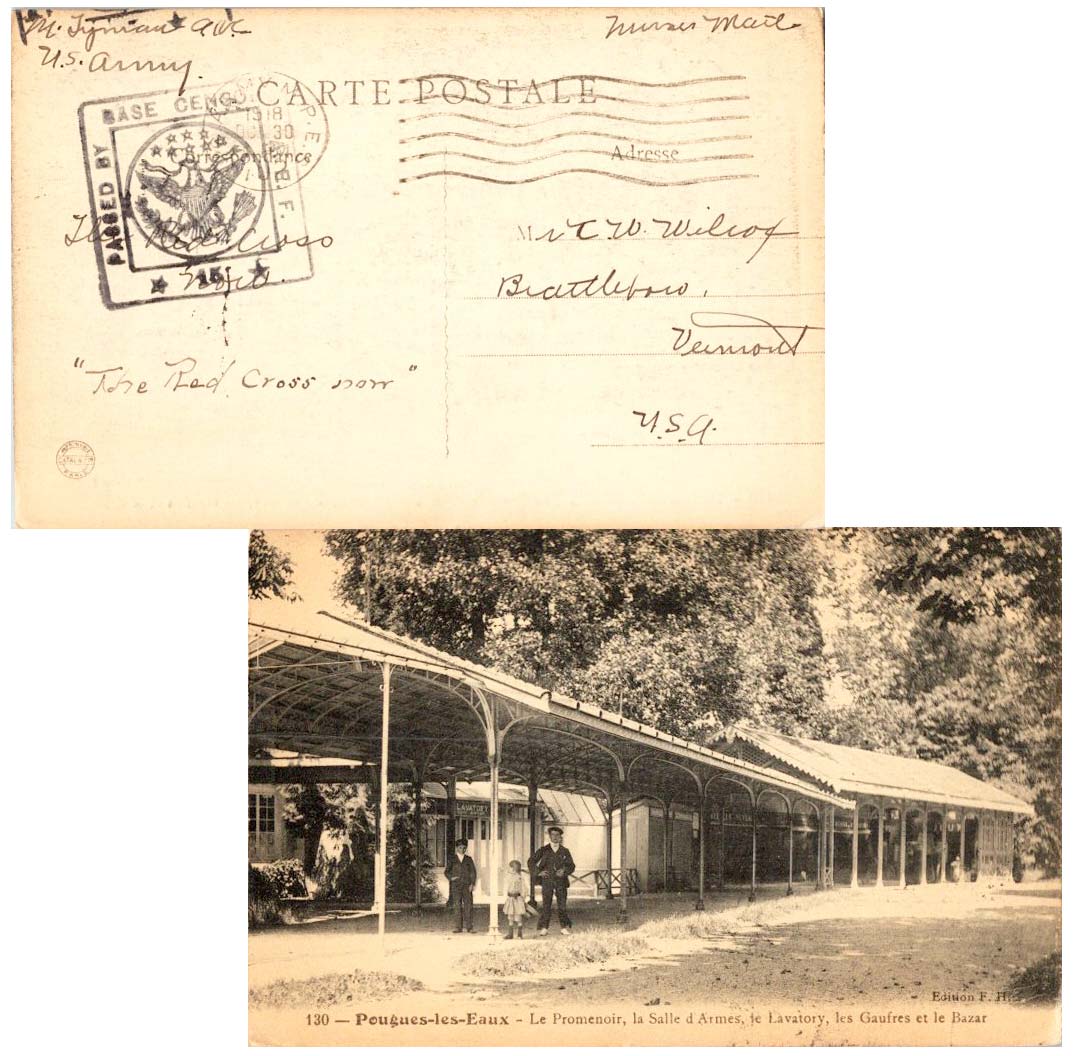 M. Tyman ANC
U.S. Army.
Nurses Mail
CARTE POSTALE
PASSED BY BASE CENSOR A.E.F.
1918
30
Correspondance
Adresse
The Red Cross
now.
"The Red Cross now"
Mr C. W. Wilcox
Brattleboro,
Vermont
U.S.A.
PARIS
LAVATORY
Edition F. H.
130 — Pougues-les-Eaux - Le Promenoir, la Salle d'Armes, le Lavatory, les Gaufres et le Bazar